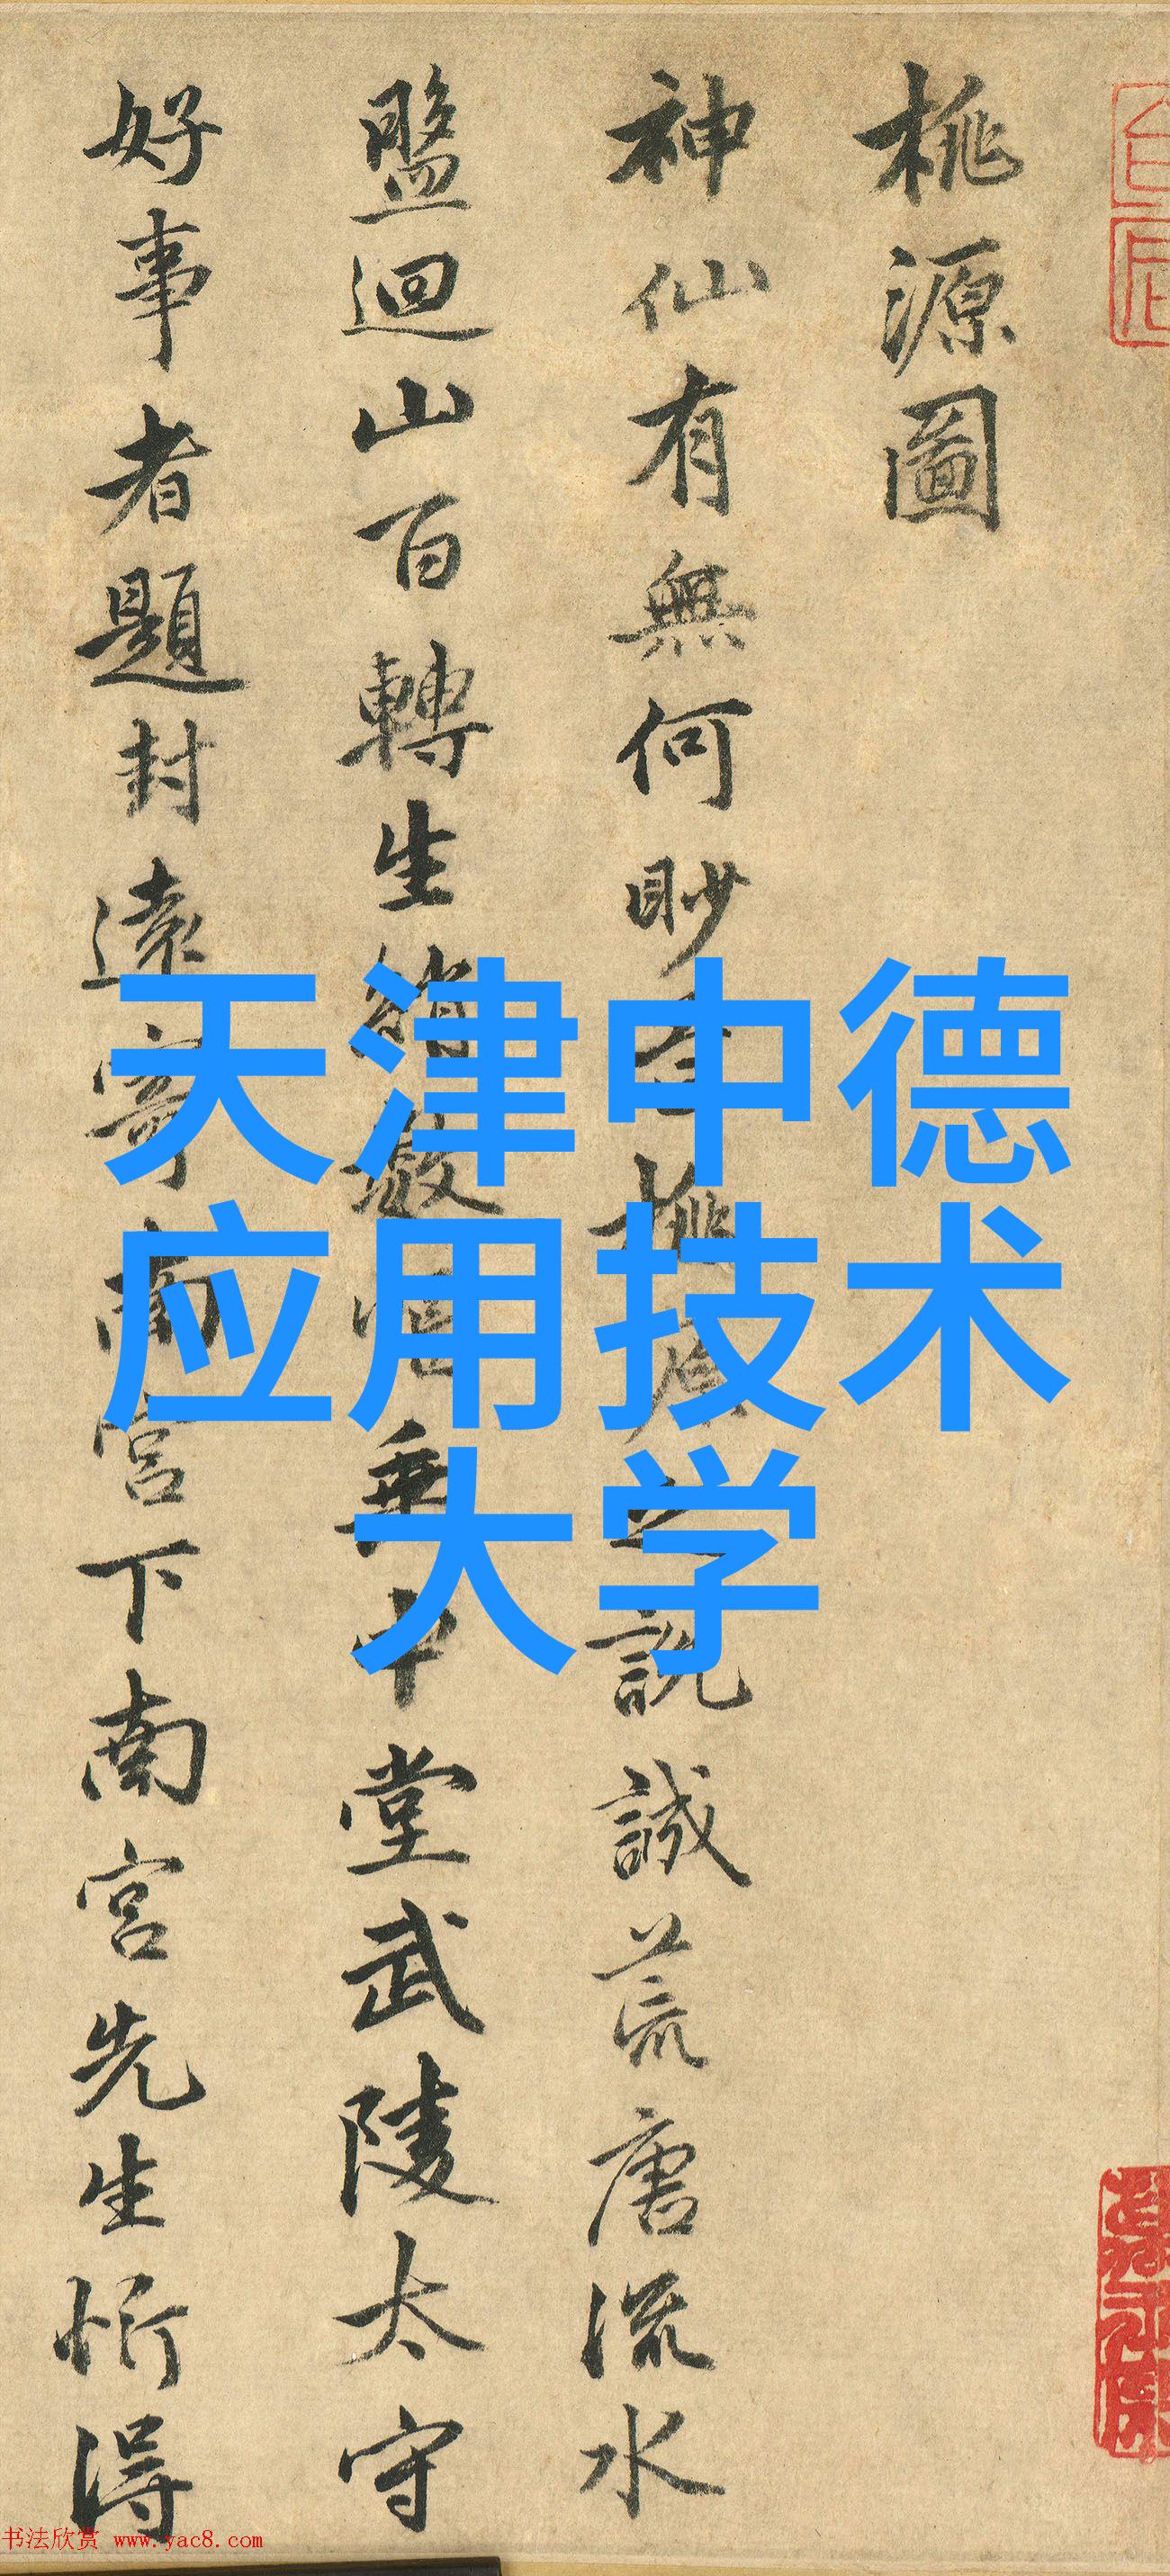 桃源圖
神仙有無何眇
説誠荒唐流水
盤迴山百轉生綃數
垂中堂武陵太守
好事者題封遠寄南宮下南宮先生忻得
天津中德
应用技术
大学
书法欣赏 www.yac8.com